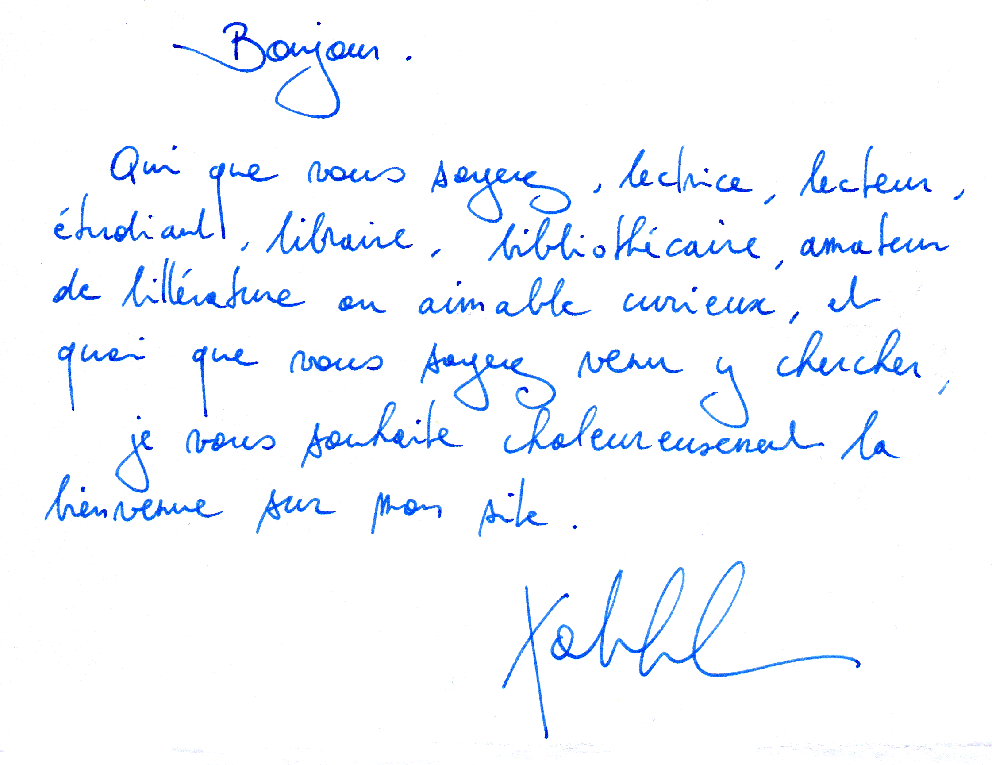 Bonjour.
Qui que vous soyez, lectrice, lecteur,
étudiant, libraire, bibliothécaire, amateur
de littérature ou aimable curieux, et
quoi que vous soyez venu y chercher,
je vous souhaite chaleureusement la
bienvenue sur mon site.